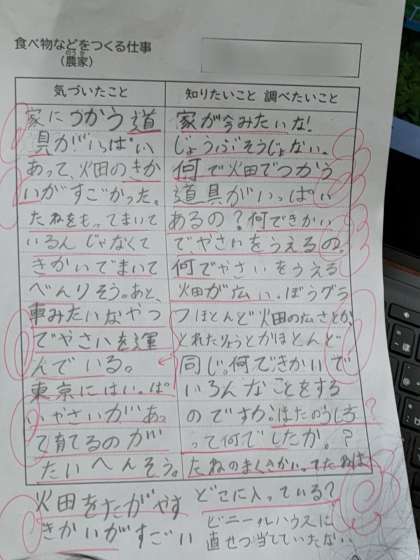 食べ物などをつくる仕事
のうか
(農家)
気づいたこと
家につかう道
具がいっぱい
あって、火田のきかい
がすごかった。
たねをもってまいて
いるんじゃなくて
きかいでまいて
べんりそう。あと、
車みたいなやつ
でやさいを運
んでいる。
東京にはいっぱ
いやさいがあっ
て育てるのが
たいへんそう。
火田をたがやす
きかいがすごい
知りたいこと 調べたいこと
家が今みたいな!
じょうぶそうじゃない。
何で火田でつかう
道具がいっぱい
あるの?何できかい
でやさいをうえるの。
何でやさいをうえる
火田が広い。ぼうグラ
フほとんど火田の広さとか、
とれたりょうとかほとんど
同じ。何できかいで
いろんなことをする
のですか。ほたのうじょう?
って何でしたか。?
たねのまくきかいってたねは
どこに入っている?
ビニールハウスに
直せつ当てていたない